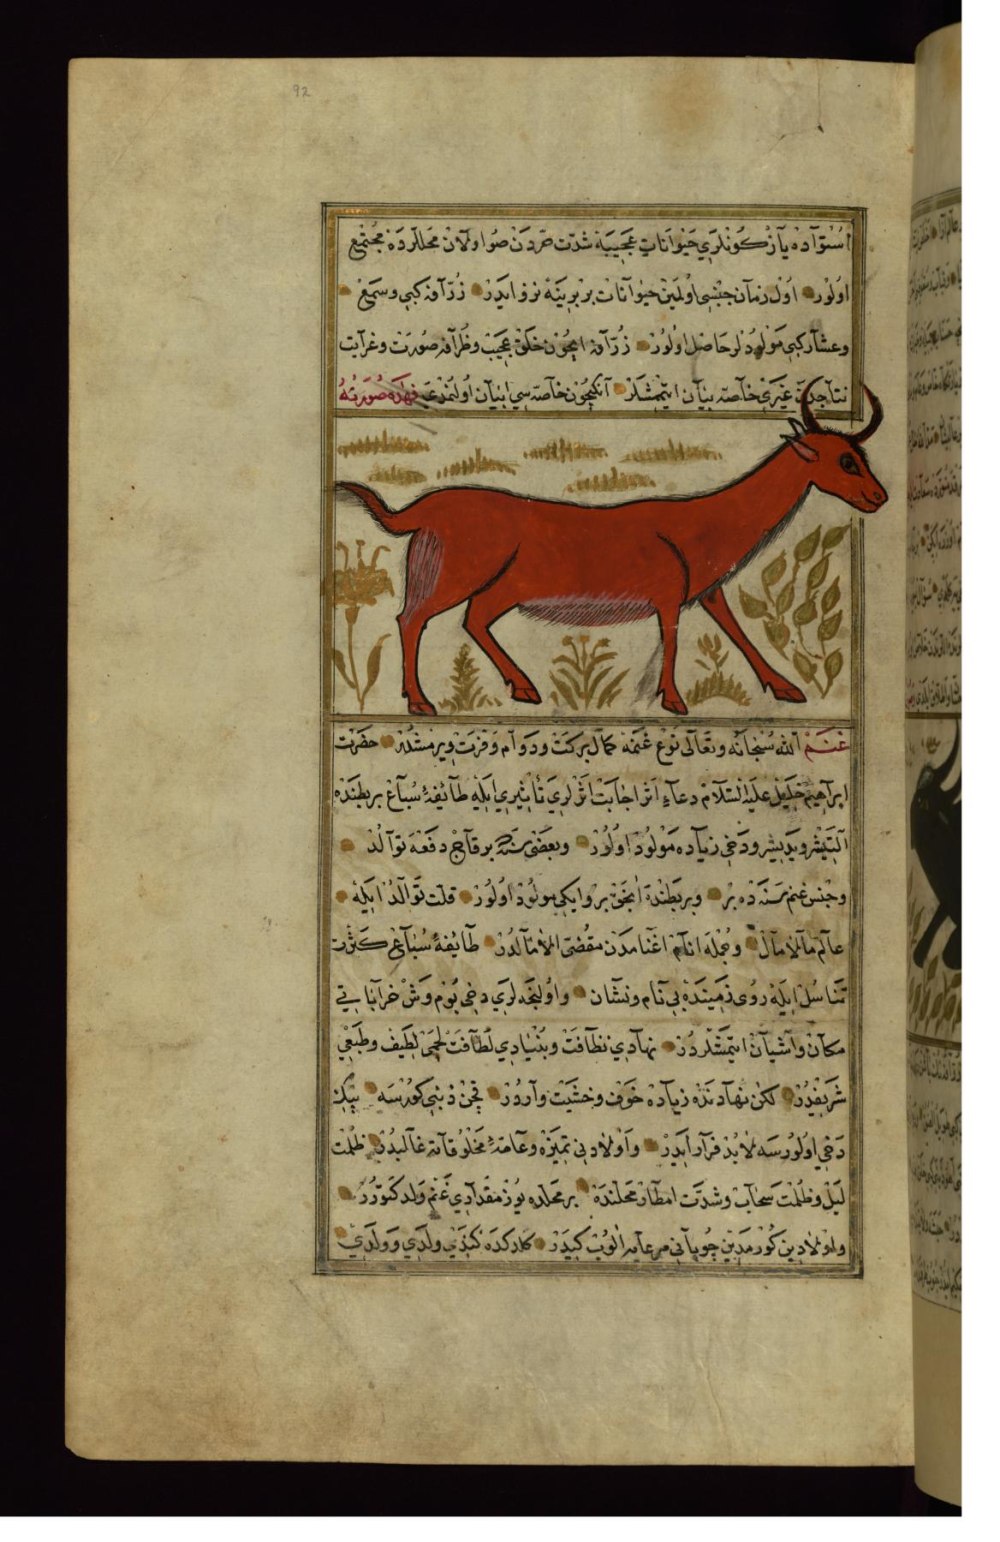 92
اُسْتوآده يازْ كونلري حيوانات عجيبيه شدّت حرّدن صو اولان محللرده مجتمع
اولور اول زمان جنسى اولمين حيوانات بربرينه نزو ايدر زرّافه كبى وسمع
وعشار كبى مولودلر حاصل اولور زرّافه ايچون خلق عجيب وظرافه صورت وغرآيت
نتاجدن غيرى خاصه بيان ايتمشلر آنكيچون خاصه سى بيان اولنمدى فهذه صورته
غنم الله سبحانه وتعالى نوع غنمه كمال بركت ودوام وفرت ويرمشلر حضرت
ابراهيم خليل عليه السلام دعاء اثر اجابت اثرلرى تأثيرى ايله طائفهٔ سباع بر بطنده
آلتيشر ويديشر ودخى زياده مولود اولور وبعضى سنه برقاج دفعه توالد
وجنس غنم سنه ده بر وبر بطنده انجق بر وايكى مولود اولور قلت توالد ايله
عالم مالامال وجمله انام اغنامدن مقضى الامالدر طائفهٔ سباع كثرت
تناسل ايله روى زمينده بى نام ونشان واولنجه لرى دخى بوم وش خرابا يى
مكان وآشيان ايتمشلردر نهادى نظافت وبنيادى لطافت لحمى لطيف وطبعى
شريفدر لكن نهادنده زياده خوف وخشيت واردر قچن ذئبى كورسه بيك
دخى اولورسه لابد فرار ايدر واولادنى تميزه وعامهٔ مخلوقاته غالبدر ظلمت
ليل وظلمت سحاب وشدت امطار محلنده بر محلده يوز مقدارى غنم ولد كتورر
واولادين كورمدين چوبانى مرعايه الوب كيدر كلدكده كندى ولدى وولدى